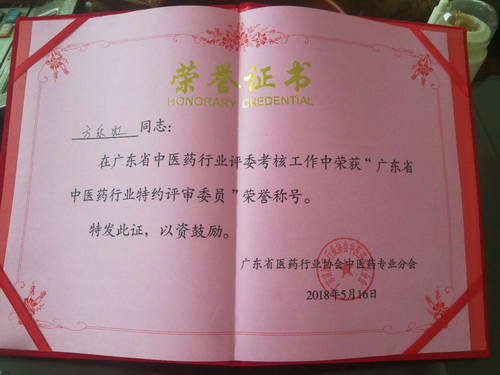 荣誉证书
HONORARY CREDENTIAL
同志：
在广东省中医药行业评委考核工作中荣获“广东省
中医药行业特约评审委员”荣誉称号。
特发此证，以资鼓励。
广东省医药行业协会中医药专业分会
2018年5月16日